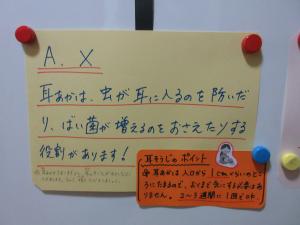 A. X
耳あかは、虫が耳に入るのを防いだ
り、ばい菌が増えるのをおさえたりする
役割があります！
耳そうじのポイント
耳あかは入口から1cmぐらいのと
ころにたまるので、おくまで気にする必要はあ
りません。2〜3週間に1回でOK.